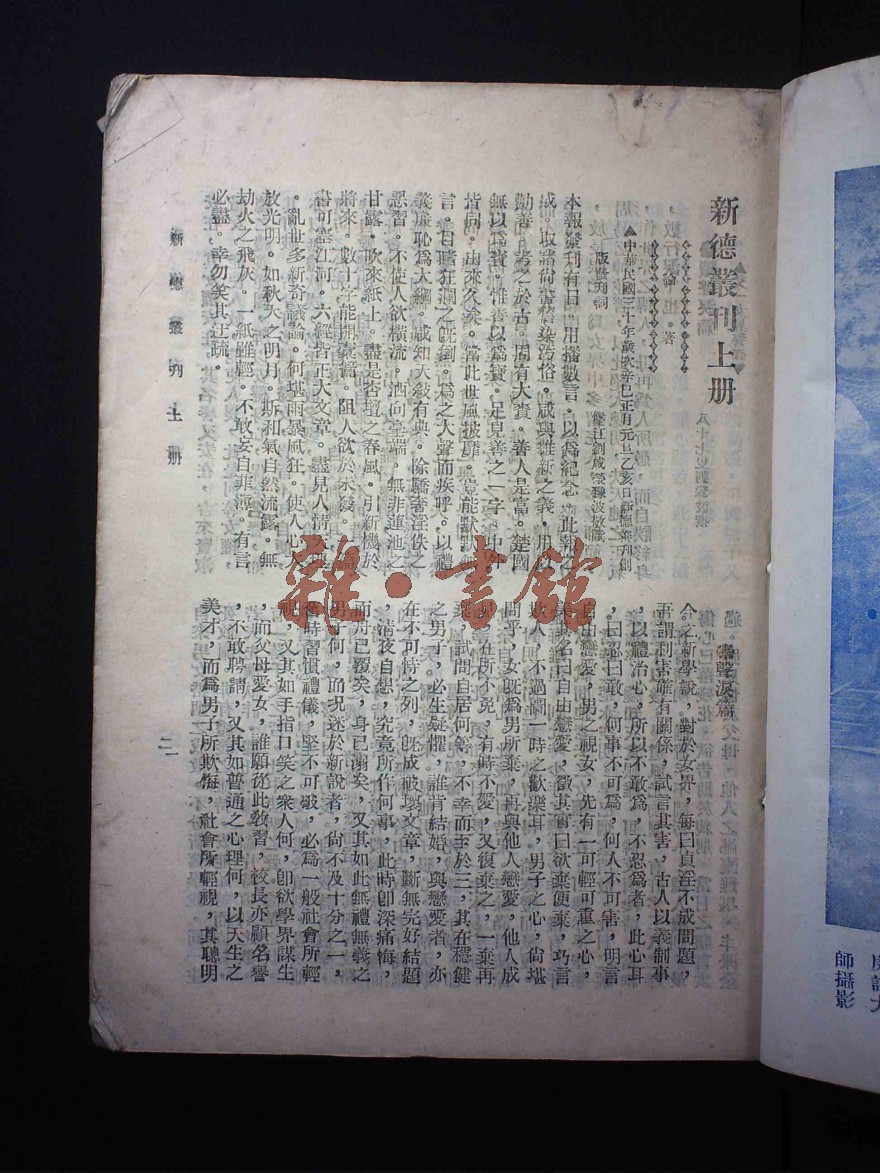 新德叢刊上册
八十七叟劉
著
▲中華民國三十年歲次辛巳正月元旦乙亥日新德善所創
版發刊詞
本報發刊有日。用攄數言。以爲紀念。此報之
成。收諸尚書舊染汚俗。咸與維新之義。用以
勸善。考之於古。周有大賚。善人是富。楚國
無以爲寶。惟善以爲寶。足見善之一字。中外
皆同。由來久矣。當此世風披靡。豈能默默無
言。目睹狂瀾之旣倒。爲之大聲而疾呼。以禮
義廉恥爲大綱。咸知天敍有典。除驕奢淫佚之
惡習。不使人欲橫流。洒向毫端。無非蓮池之
甘露。吹來紙上。盡是杏壇之春風。引新機於
將來。數十字能開蒙蔽。阻人欲於未發。一篇
書可塞江河。六經皆正大文章。盡見人情天理
。亂世多新奇議論。何堪雨暴風狂。使人心大
放光明。如秋天之明月。斯和氣自然流露。無
劫火之飛灰。一紙雖輕。不敢妄自菲薄。有言
必盡。幸勿笑其迂疏。
新德叢刊上册
聲淚篇
今之新學說，對於女界，每曰貞淫不成問題，
再謂利害確有關係，試言其害，古人以義制事
，以禮治心，所以不敢爲，不忍爲者，此心耳
，曰忍曰敢，何事不可爲，何人不可害，明言
自由戀愛，男之視女，先有一可輕可重之心，
美其名曰自由戀愛，徵其實曰欲棄便棄，巧言
欺人，不過圖一時之歡樂耳，男子之心，尙堪
問乎，女旣爲男所棄，再與他人戀愛，他人成
見在所不免，有時不愛，又復棄之，一棄再
棄，試問自居何等，不幸而至於三，其在穩健
之男子，必生疑懼，誰肯結婚，與戀愛者，亦
在不可恃之列，旣成破壞文章，斷無完好結題
，淸夜自想，究竟所作何事，此時卽深痛悔，
而舟已覆矣，身已溺矣，又其如此無禮無義之
男子何，而况迷於新說者，尙不及十分之一，
舊時習慣禮儀，堅不可破，必爲一般社會所輕
視，又其如手指口笑之衆人何，卽欲學界謀生
，而父母愛女，誰願從此敎習，校長亦顧名譽
，不敢聘請，又其如普通之心理何，以天生之
美才，而爲男子所欺悔，社會所輕視，其聰明
師攝影
雜·書館